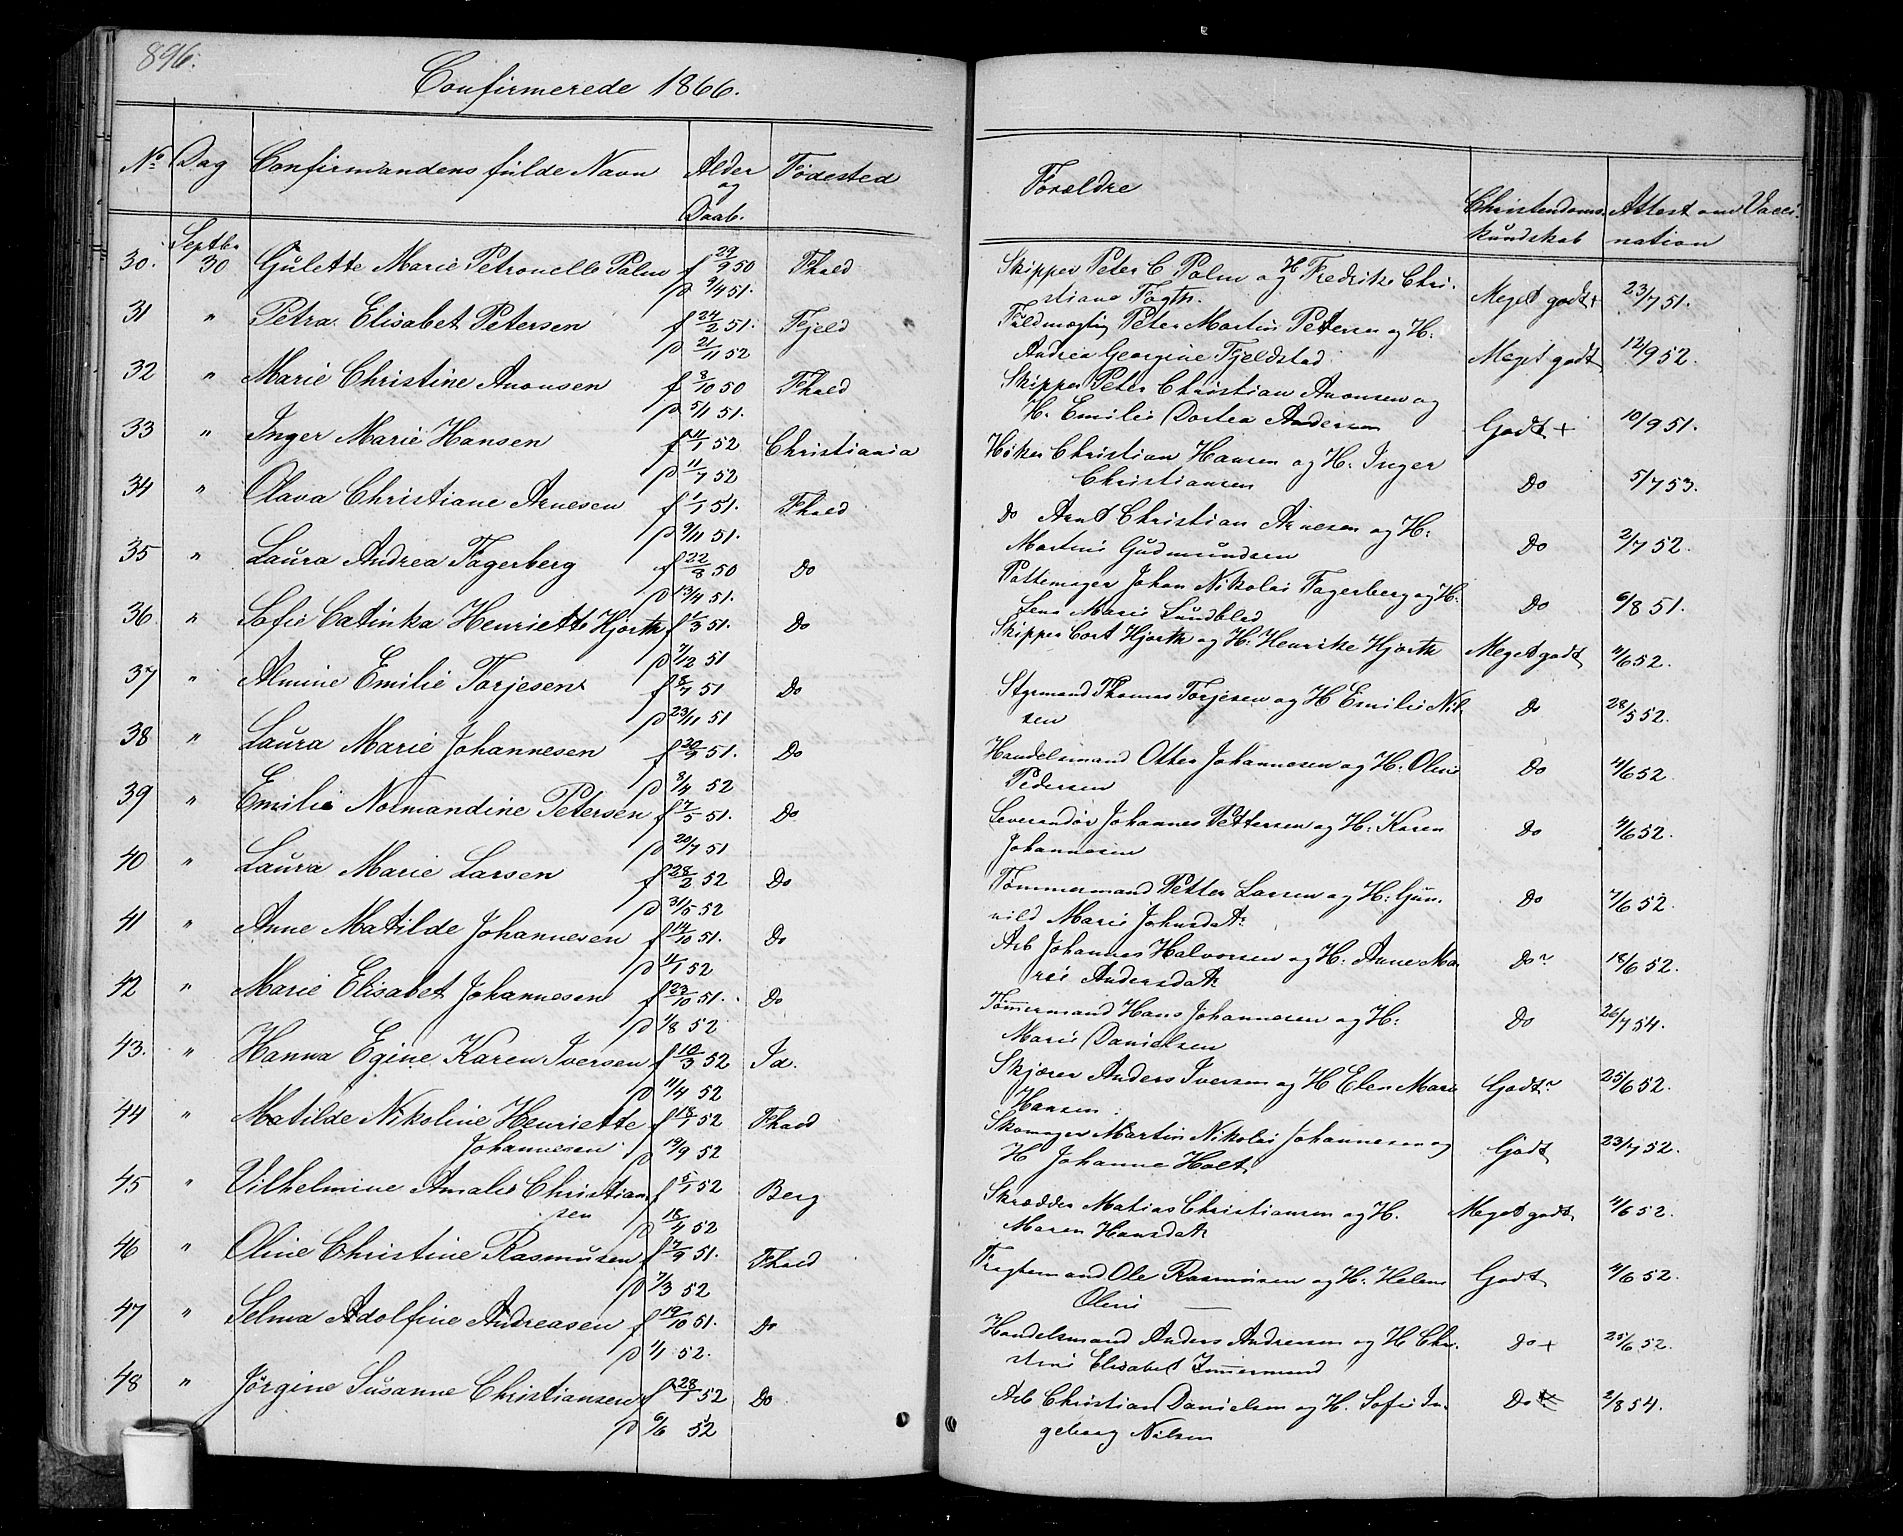 896.
Confirmerede 1866.
No. Dag Confirmandens fulde Navn Alder og Daab. Fødested Forældre Christendoms-kundskab Attest om Vacci-nation
30. Septbr 30 Gulette Marie Petronelle Palm f 29/9 50 Fhald Skipper Peter C Palm og H Fredrikke Chri-
p 9/4 51. stiane Fogth. Meget godt + 23/7 51.
31 " Petra Elisabet Petersen f 24/2 51. Fjeld Fuldmægtig Peter Martin Petersen og H.
p 21/11 52 Andrea Georgine Fjeldstad. Meget godt 12/9 52.
32 " Marie Christine Anonsen f 8/10 50 Fhald Skipper Peter Christian Anonsen og
p 5/1 51. H. Emilie Dortea Andersen Godt + 10/9 51.
33 " Inger Marie Hansen f 11/1 52 Christiania Høker Christian Hansen og H. Inger
p 11/7 52 Christiansen Do 5/7 53.
34 " Olava Christiane Arnesen f 1/1 51. Fhald Do Arnt Christian Arnesen og H.
p 9/11 51. Martine Gudmundsen Do 2/7 52.
35 " Laura Andrea Fagerberg f 22/8 50 Do Pottemager Johan Nikolai Fagerberg og H.
p 13/4 51. Lene Marie Lundblad Do 6/8 51.
36 " Sofie Catinka Henriette Hjorth f 1/3 51. Do Skipper Cort Hjorth og H. Henrikke Hjorth Meget godt 11/6 52.
p 7/12 51
37 " Almine Emilie Torjesen f 8/7 51 Do Styrmand Thomas Torjesen og H Emilie Nil-
p 23/11 51 sen Do 28/5 52.
38 " Laura Marie Johannesen f 20/9 51. Do Handelsmand Otter Johannesen og H. Oline
p 3/4 52 Pedersen Do 11/6 52
39 " Emilie Normandine Petersen f 7/5 51. Do Leverandør Johannes Pettersen og H. Karen
p 20/7 51 Johannesen Do 11/6 52.
40 " Laura Marie Larsen f 28/2 52 Do Tømmermand Petter Larsen og H. Gun-
p 31/5 52 nild Marie Johnsdat. Do 7/6 52.
41 " Anne Matilde Johannesen f 14/10 51. Do Arb Johannes Halvorsen og H. Anne Ma-
p 11/1 52 rie Andersdat. Do 18/6 52.
42 " Marie Elisabet Johannesen f 23/10 51. Do Tømmermand Hans Johannesen og H.
p 1/8 52 Marie Danielsen Do 26/7 54.
43. " Hanna Egine Karen Iversen f 10/3 52 Id. Skjærer Anders Iversen og H Elen Marie
p 11/4 52 Hansen. Godt 25/6 52.
44 " Matilde Nikoline Henriette f 18/1 52 Fhald Skomager Martin Nikolai Johannesen og
Johannesen p 19/9 52 H Johanne Holt Godt 23/7 52.
45 " Vilhelmine Amalie Christian- f 5/1 52 Berg Skrædder Matias Christiansen og H.
sen p 18/4 52 Maren Hansdat. Meget godt 11/6 52.
46 " Oline Christine Rasmusen f 7/9 51. Fhald Fragtemand Ole Rasmusen og H. Helene
p 7/3 52 Oline Godt 11/6 52.
47 " Selma Adolfine Andreasen f 19/10 51. Do Handelsmand Anders Andreasen og H Chri-
p 1/1 52. stine Elisabet Immermand Do + 25/6 52.
48 " Jørgine Susanne Christiansen f 28/1 52 Do Arb Christian Danielsen og H. Sofie In-
p 6/6 52 geborg Nilsen Do 2/8 54.